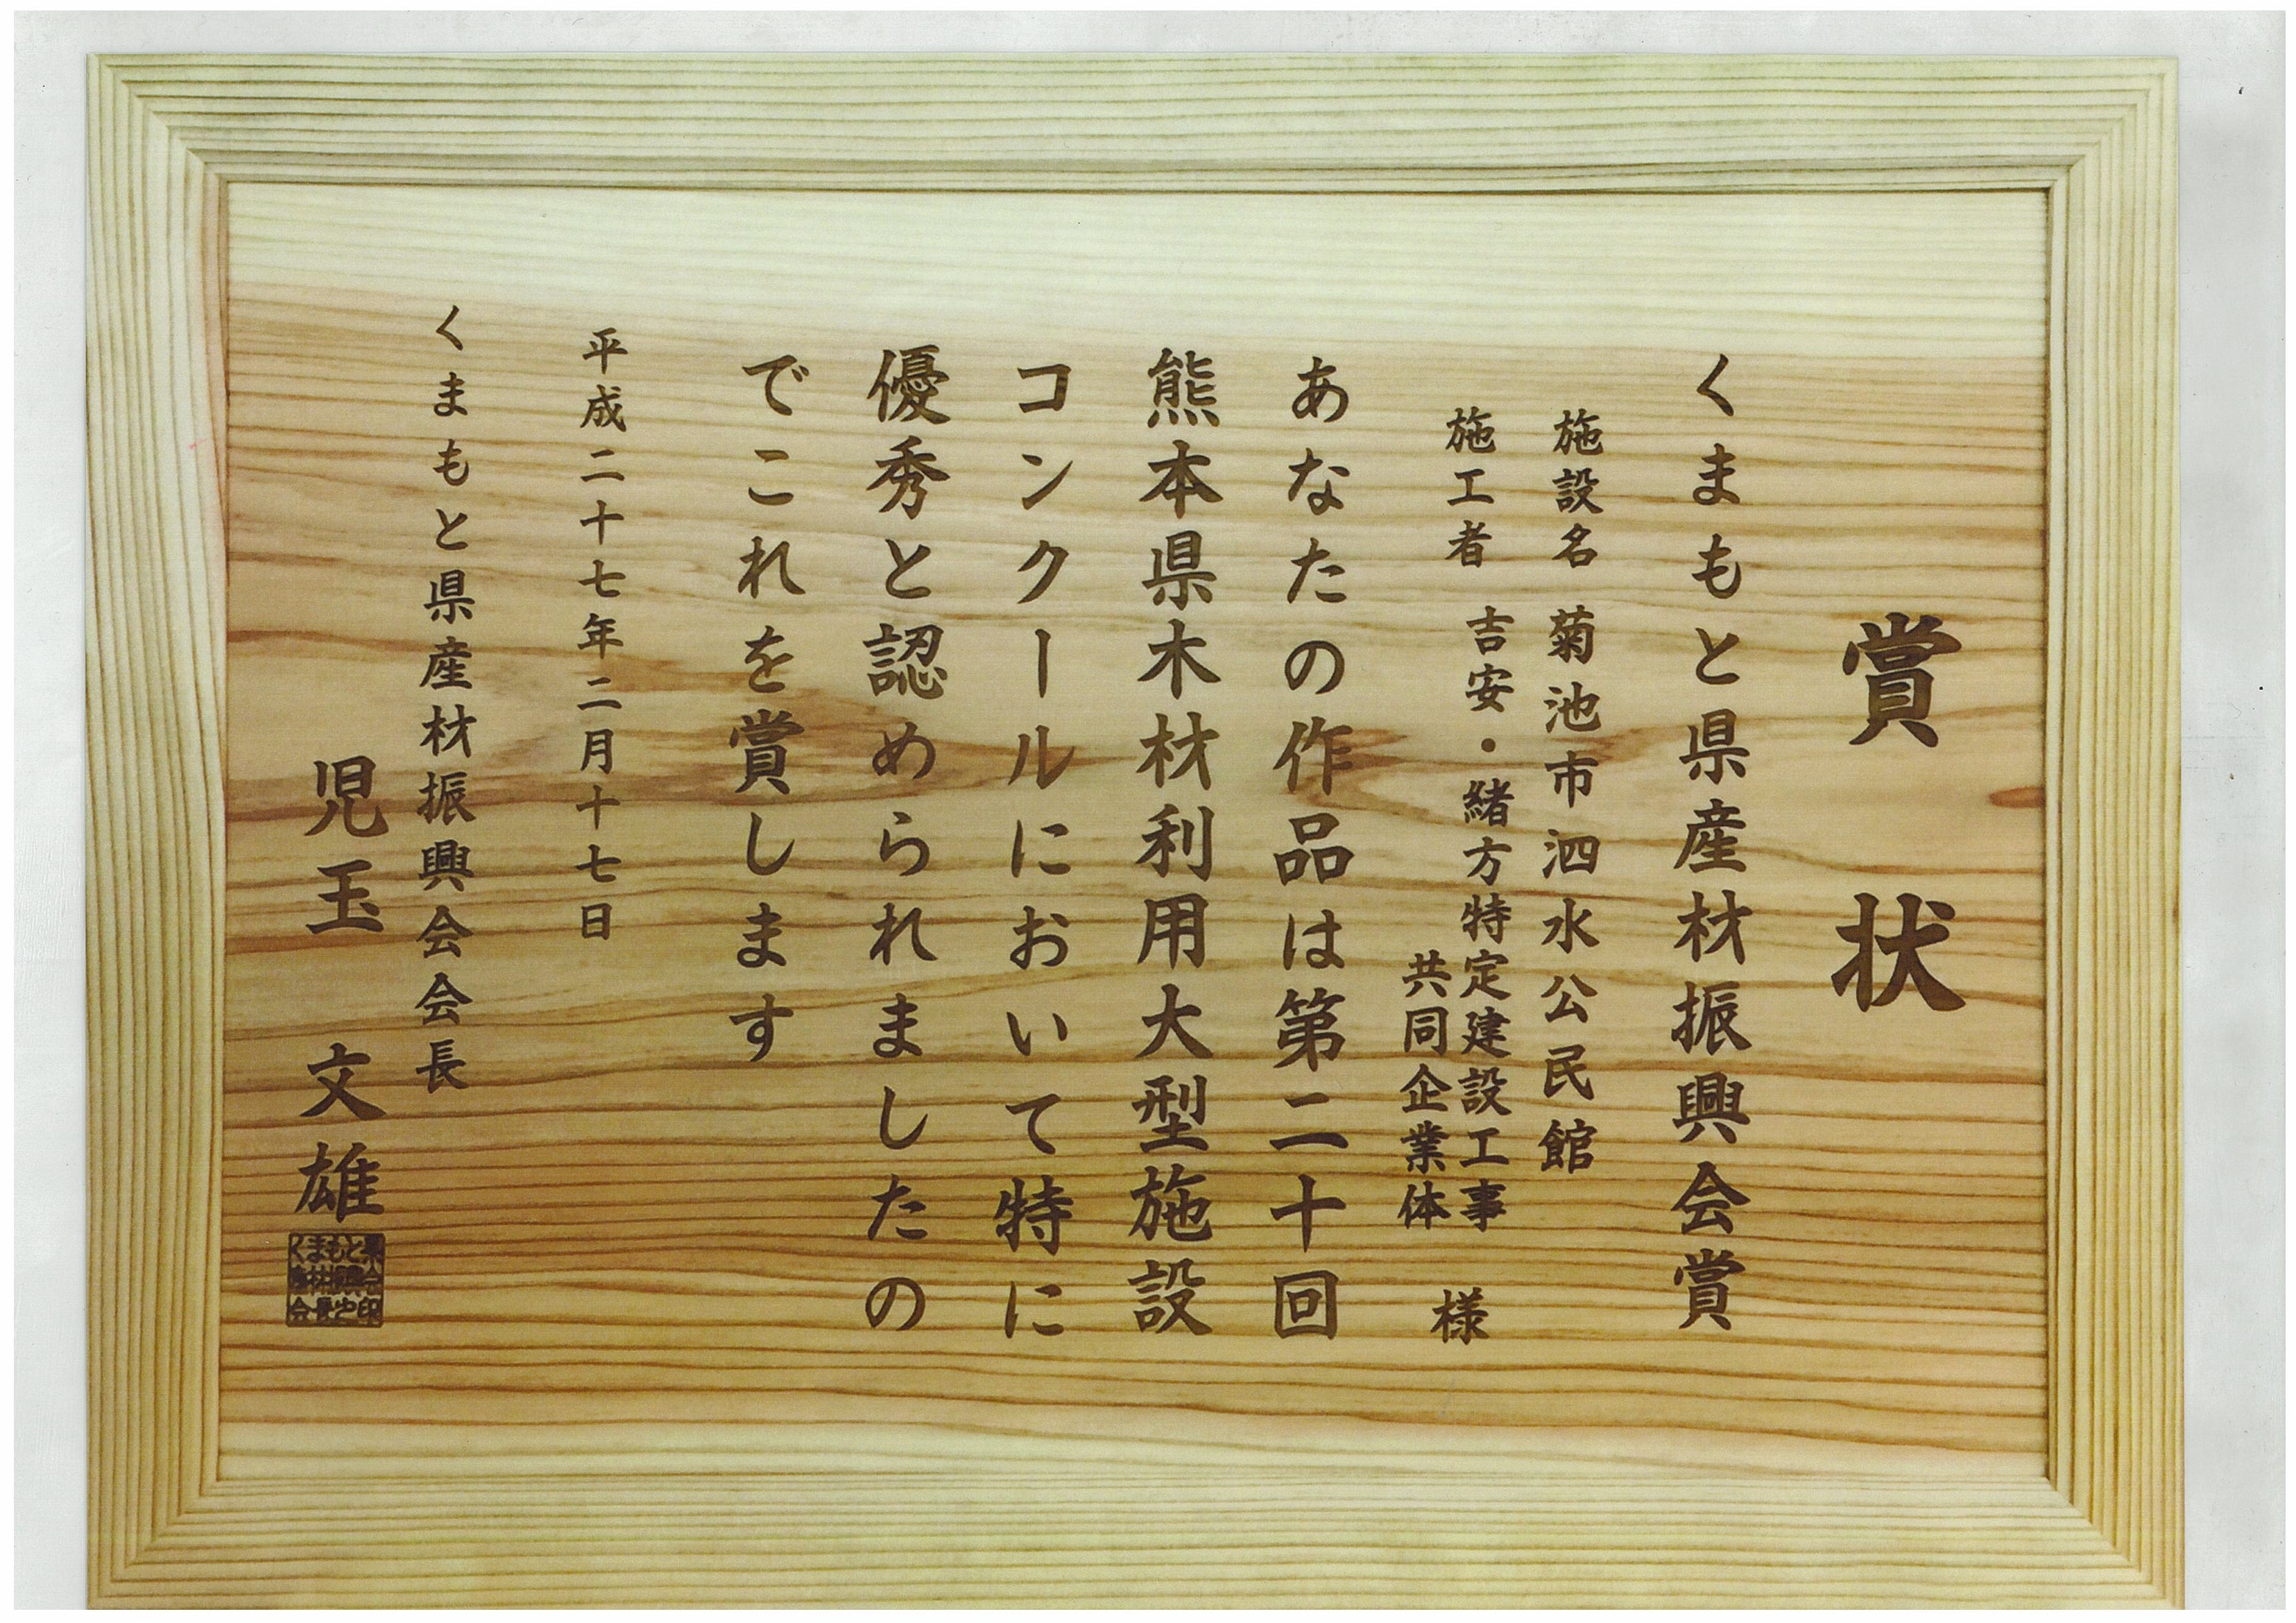 賞状
くまもと県産材振興会賞
施設名 菊池市泗水公民館
施工者 吉安・緒方特定建設工事
共同企業体 様
あなたの作品は第二十回
熊本県木材利用大型施設
コンクールにおいて特に
優秀と認められましたの
でこれを賞します
平成二十七年二月十七日
くまもと県産材振興会会長
児玉 文雄